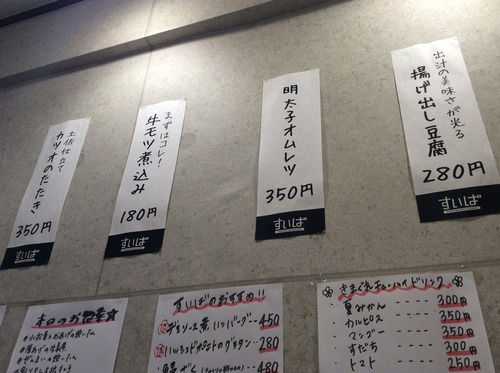 土佐仕立て
カツオのたたき
350円
すいば
まずはコレ!
牛モツ煮込み
180円
すいば
明太子オムレツ
350円
すいば
出汁の美味さが光る
揚げ出し豆腐
280円
すいば
本日のお惣菜
すいばのおすすめ!!
デミソース煮込ハンバーグ 450
280
480
夏みかん ---- 300円
カルピス ---- 350円
マンゴー ---- 350円
すだち ---- 300円
トマト ---- 250円